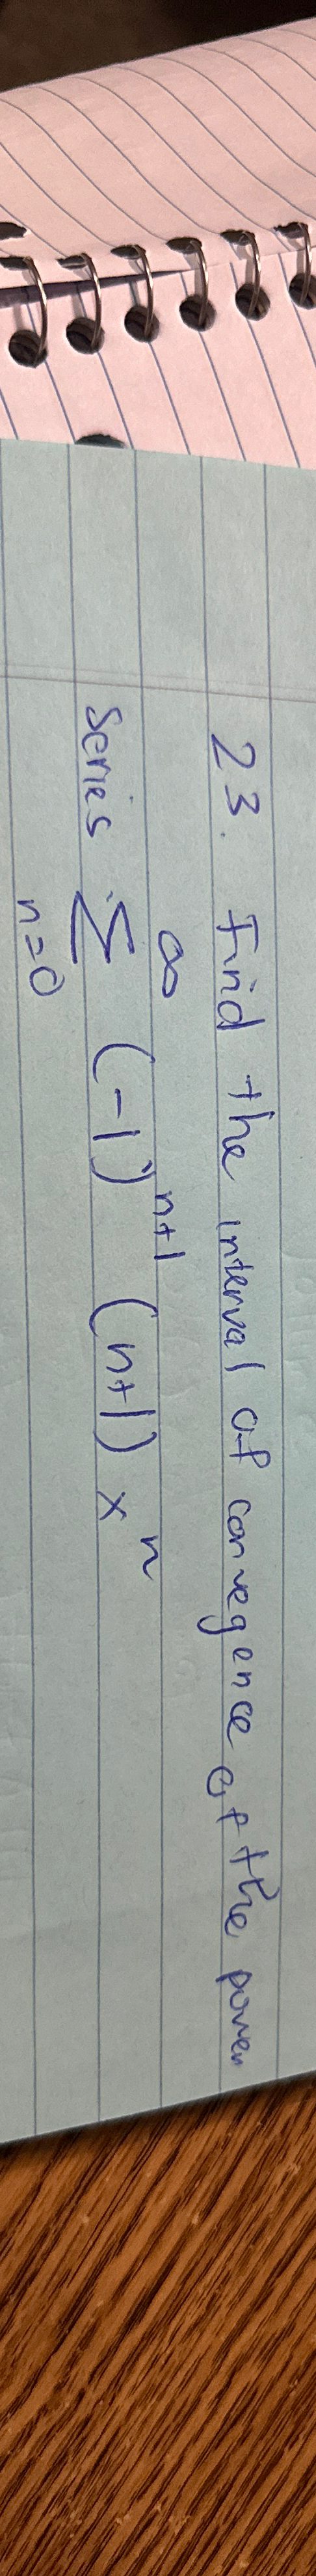 23. Find the interval of convegence of the power
series ∞∑n=0 (-1)^{n+1} (n+1) x^n